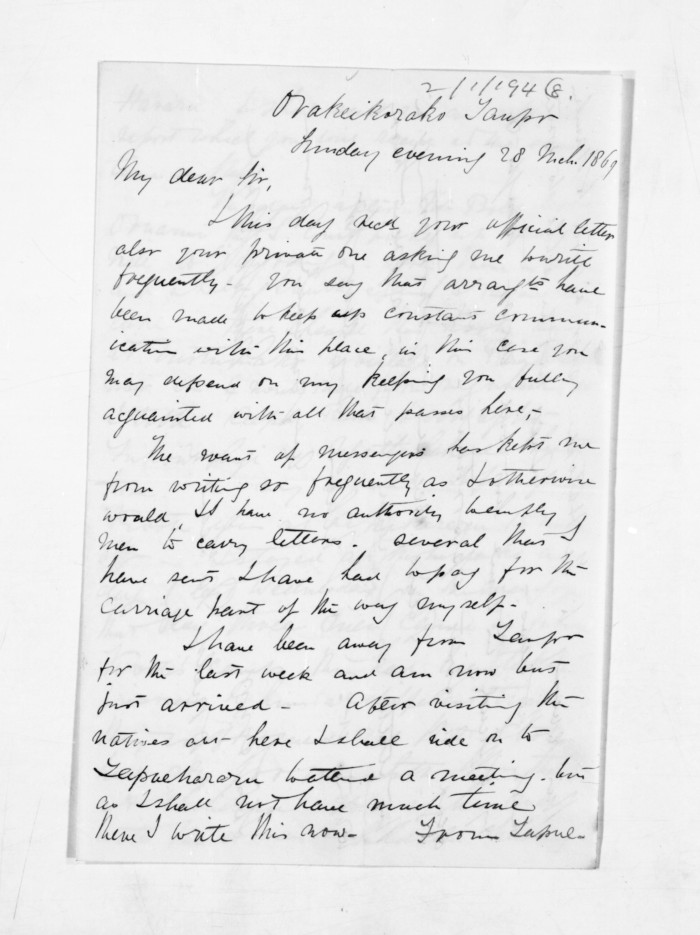 2/1/1946.
Orakeikorako Taupo
Sunday evening 28 Mch. 1869
My dear Sir,
I this day recd your official letter
also your private one asking me to write
frequently - you say that arrangts have
been made to keep up constant commun-
ication with this place, in this case you
may depend on my keeping you fully
acquainted with all that passes here,-
The want of messengers has kept me
from writing so frequently as I otherwise
would, I have no authority to employ
men to carry letters. Several that I
have sent I have had to pay for the
carriage part of the way myself -
I have been away from Taupo
for the last week and am now but
just arrived - After visiting the
natives out here I shall ride on to
Tapueharuru to attend a meeting. but
as I shall not have much time
there I write this now - From Tapue-